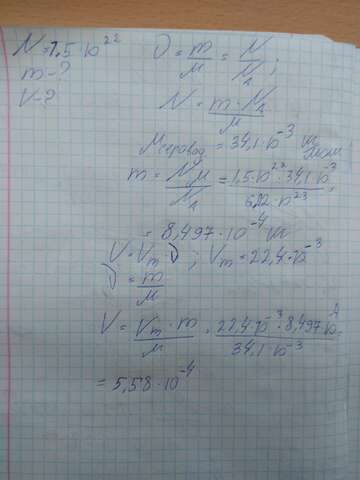 N = 1,5 · 10²²
m - ?
V - ?
ν = m/M = N/N_A ;
N = m · N_A / M
M серовод = 34,1 · 10⁻³ кг/моль
m = N M / N_A = 1,5 · 10²² · 34,1 · 10⁻³ / 6,02 · 10²³
= 8,497 · 10⁻⁴ кг
V = V_m · ν ; V_m = 22,4 · 10⁻³
ν = m/M
V = V_m · m / M = 22,4 · 10⁻³ · 8,497 · 10⁻⁴ / 34,1 · 10⁻³
= 5,58 · 10⁻⁴